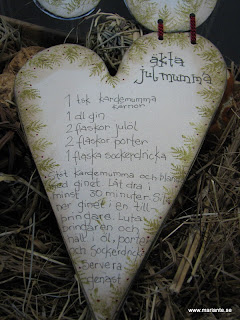 äkta
julmumma
1 tsk kardemumma
kärnor
1 dl gin
2 flaskor julöl
2 flaskor porter
1 flaska sockerdricka
stöt kardemumma och blanda
med ginet. Låt dra i
minst 30 minuter. Sila
ner ginet i en till-
bringare. Luta
bringaren och
häll i öl, porter
och sockerdricka
Servera
genast
www.mariante.se